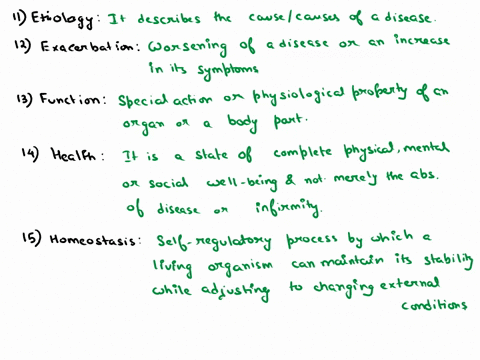 11) Etiology: It describes the cause/causes of a disease.
12) Exacerbation: Worsening of a disease or an increase
in its symptoms
13) Function: Special action or physiological property of an
organ or a body part.
14) Health: It is a state of complete physical, mental
or social well-being & not merely the abs.
of disease or infirmity.
15) Homeostasis: Self-regulatory process by which a
living organism can maintain its stability
while adjusting to changing external
conditions